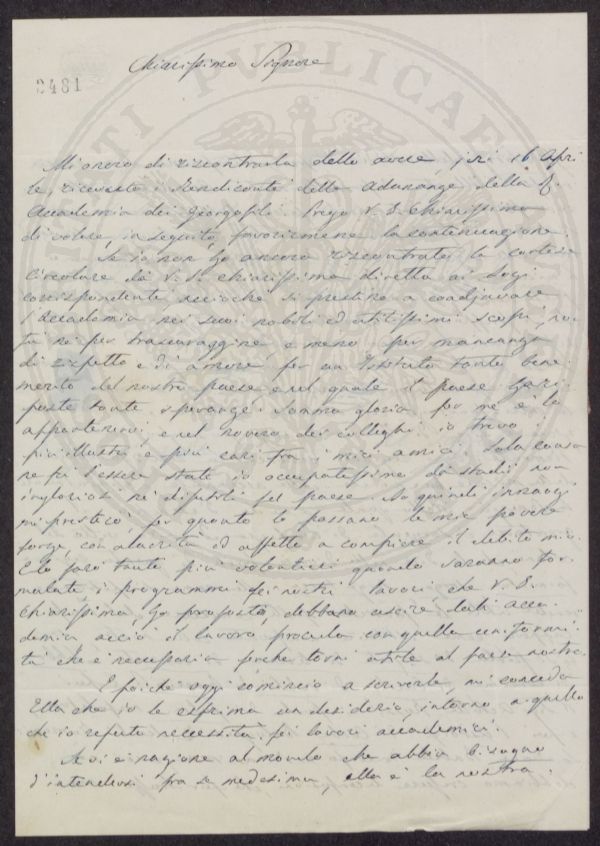 Chiarissimo Signore
2481
PUBLICAE
Mi onoro di riscontrarla dello avere, jeri 16 Apri
le, ricevuto i Rendiconti delle Adunanze della R.
Accademia dei Georgofili. Prego V. S. Chiarissima
di volere, in seguito, favorirmene la continuazione.
Se io non ho ancora riscontrato la cortese
Circolare da V. S. Chiarissima diretta ai Socj
corrispondenti acciochè si prestino a coadjuvare
l'Accademia nei suoi nobili ed utilissimi scopi,
nè per trascuraggine e meno per mancanza
di rispetto e di amore per un Istituto tanto bene
merito del nostro paese, e nel quale il paese ha ri
poste tante speranze. Somma gloria per me è lo
appartenervi, e nel novero dei colleghi io trovo i
più illustri e più cari fra i miei amici. Sola causa
ne fu l'essere stato io occupatissimo di studii non
ingloriosi nè disutili pel paese. Da quindi innanzi
mi presterò, per quanto lo possano le mie povere
forze, con alacrità ed affetto a compiere il debito mio.
E lo farò tanto più volentieri quando saranno for
mulati i programmi dei nostri lavori che V. S.
Chiarissima, ha proposto, debbano uscire dall'acca
demia acciò il lavoro proceda con quella uniformi
tà che è necessaria perchè torni utile al paese nostro.
E poichè oggi comincio a scriverle, mi conceda
Ella che io le esprima un desiderio, intorno a quello
che io reputo necessità pei lavori accademici.
Se vi è nazione al mondo che abbia bisogno
d'intendersi fra se medesima ella è la nostra.